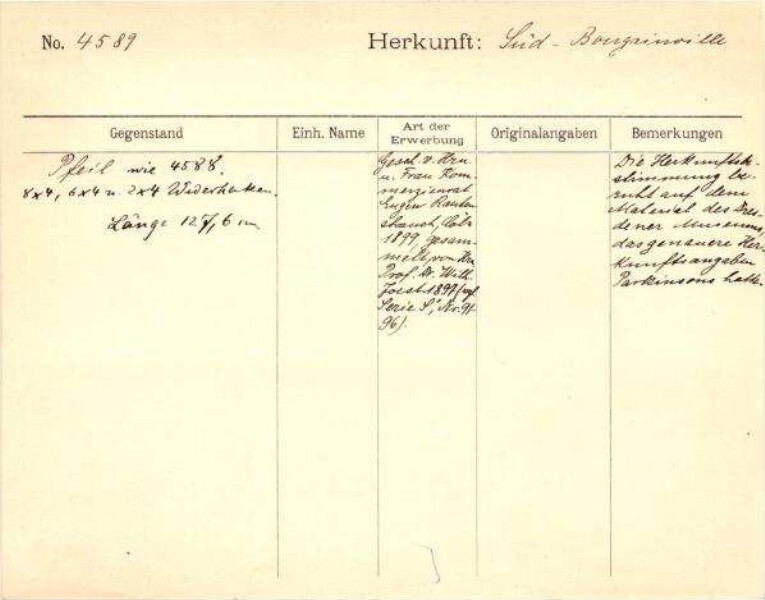 No. 4589
Herkunft: Süd - Bougainville
Gegenstand
Einh. Name
Art der
Erwerbung
Originalangaben
Bemerkungen
Pfeil wie 4588.
8x4, 6x4 u. 2x4 Widerhaken.
Länge 127,6 cm
Gesch. v. Hrn
u. Frau Kom-
merzienrat
Eugen Rauten-
strauch, Cöln
1899, gesam-
melt von Hn
Prof. Dr. Wilh.
Joest 1897 (vgl.
Serie S, Nr. 91
96).
Die Herkunftsbe-
stimmung be-
ruht auf dem
Material des Dres-
dener Museums,
das genauere Her-
kunftsangaben
Parkinsons hatte.